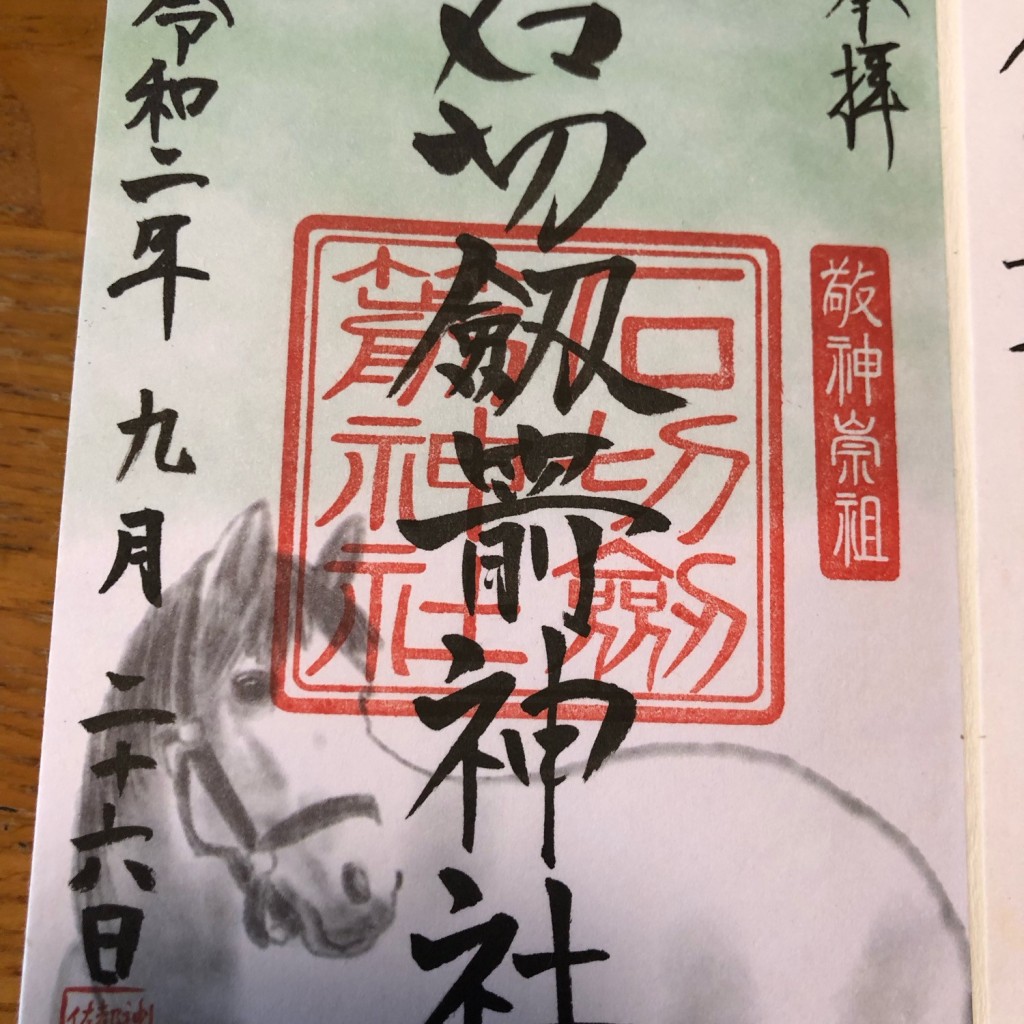 奉拝
敬神崇祖
石切劔箭神社
石切劔
箭神社
令和二年 九月 二十六日